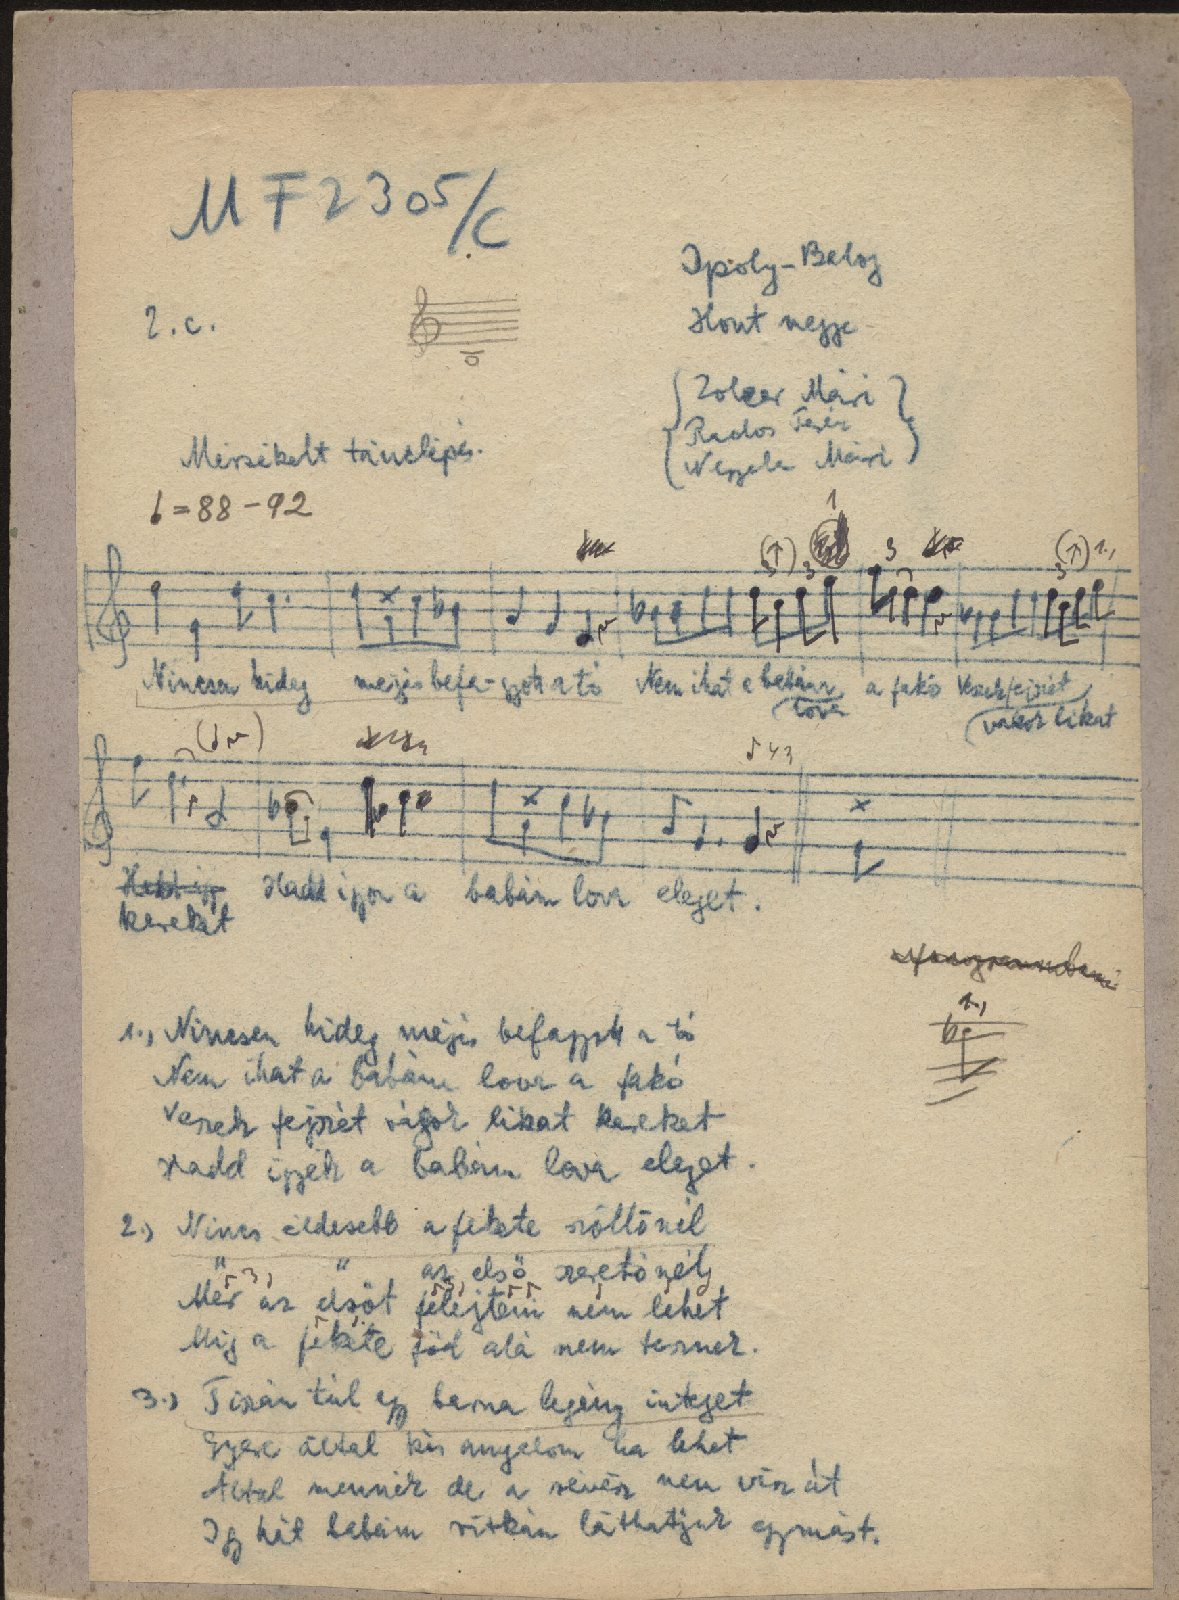 MF2305/c
Ipoly-Balog
2.c.
Hont megye
Zolcer Mári
Rados Teréz
Mári
Mérsékelt tánclépés.
=88-92
1
(↑) 3 3 3 (↑) 1.,
3
Nincsen hideg mégis befa-gyott a tó Nem ihat a babám a fakó Veszek fejszét
lova vágok likat
Hadd igyon a babám lova eleget.
kereket
1.,
1., Nincsen hideg mégis befagyott a tó
Nem ihat a babám lova a fakó
Veszek fejszét vágok likat kereket
Hadd igyék a babám lova eleget.
2., Nincs édesebb a fekete szöllőnél
" " az első szeretőnél
Mer az elsőt felejteni nem lehet
Míg a fekete föd alá nem tesznek.
3., Tiszán túl egy barna legény integet
Gyere által kis angyalom ha lehet
Által mennék de a révész nem visz át
Így hát babám ritkán láthatjuk egymást.